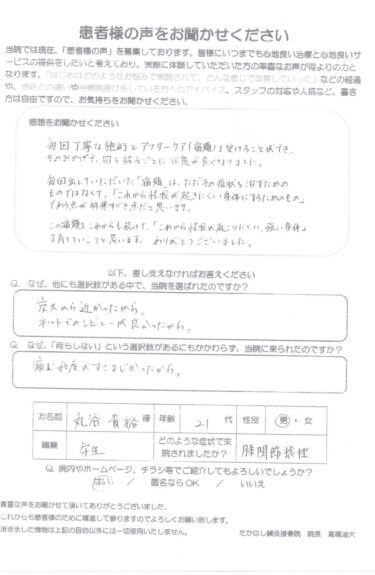 患者様の声をお聞かせください
当院では現在、「患者様の声」を募集しております。皆様にいつまでも心地良い治療と心地良いサ
ービスの提供をしたいと考えており、実際に体験していただいた方の率直なお声が何よりの力と
なります。「はじめはどのようなお悩みで来院されて、どんな感じで改善していった」などの経過
や、他店との違いや治療院選びをしている方へのアドバイス、スタッフの対応や人柄など、書き
方は自由ですので、お気持ちをお聞かせください。
感想をお聞かせください
毎回丁寧な施術とアフターケア(宿題)を受けることができ、
そのおかげで、回を経るごとに状態が良くなりました。
毎回出していただいた「宿題」は、ただその症状を治すための
ものではなく、「これから怪我が起きにくい身体にするためのもの」
である点が効果すべき点だと思います。
この宿題をこれからも続けて、「これから怪我が起こりにくい、強い身体」
を育てていこうと思います。ありがとうございました。
以下、差し支えなければお答えください
Q なぜ、他にも選択肢がある中で、当院を選ばれたのですか?
京大から近かったから。
ネットでのレビューが良かったから。
Q なぜ、「何もしない」という選択肢があるにもかかわらず、当院に来られたのですか?
痛む程度がすさまじかったから。
お名前 丸谷 貴裕 様 年齢 21 代 性別 男・女
職業 学生 どのような症状で来院されましたか? 膝関節捻挫
Q 院内やホームページ、チラシ等でご紹介してもよろしいでしょうか?
はい / 匿名ならOK / いいえ
貴重な声をお聞かせて頂いてありがとうございました。
これからも患者様のために精進して参りますのでよろしくお願い致します。
頂きました情報は上記の目的以外には一切使用いたしません。
たかはし鍼灸接骨院 院長 高橋迪大